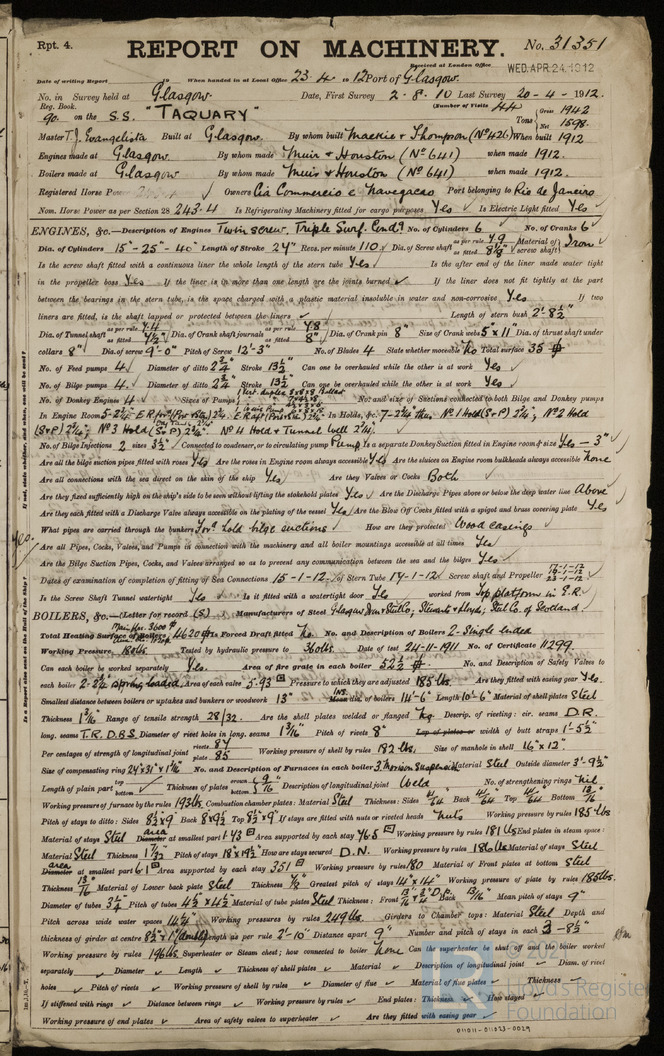 Rpt. 4. REPORT ON MACHINERY. No. 31351
Received at London Office WED. APR. 24. 1912
Date of writing Report 19 When handed in at Local Office 23.4.1912 Port of Glasgow.
No. in Survey held at Glasgow. Date, First Survey 2-8-10 Last Survey 20-4-1912.
Reg. Book. (Number of Visits 44
90. on the S.S. "TAQUARY" Tons Gross 1942 Net 1598.
Master T.J. Evangelista Built at Glasgow. By whom built Mackie & Thompson (No 426) When built 1912
Engines made at Glasgow By whom made Muir & Houston (No 641) when made 1912.
Boilers made at Glasgow By whom made Muir & Houston (No 641) when made 1912.
Registered Horse Power Owners Cia Commercio e Navegacao Port belonging to Rio de Janeiro
Nom. Horse Power as per Section 28 243.4 Is Refrigerating Machinery fitted for cargo purposes Yes Is Electric Light fitted Yes
ENGINES, &c.—Description of Engines Twin screw, Triple Surf. Cond. No. of Cylinders 6 No. of Cranks 6
Dia. of Cylinders 15"-25"-40" Length of Stroke 24" Revs. per minute 110 Dia. of Screw shaft as per rule 7.9 as fitted 8 1/8" Material of screw shaft Iron
Is the screw shaft fitted with a continuous liner the whole length of the stern tube Yes Is the after end of the liner made water tight
in the propeller boss Yes If the liner is in more than one length are the joints burned ✓ If the liner does not fit tightly at the part
between the bearings in the stern tube, is the space charged with a plastic material insoluble in water and non-corrosive Yes If two
liners are fitted, is the shaft lapped or protected between the liners ✓ Length of stern bush 2'-8 1/2"
Dia. of Tunnel shaft as per rule 7.4 as fitted 7 1/2" Dia. of Crank shaft journals as per rule 7.8 as fitted 8" Dia. of Crank pin 8" Size of Crank webs 5" x 11" Dia. of thrust shaft under
collars 8" Dia. of screw 9'-0" Pitch of Screw 12'-3" No. of Blades 4 State whether moveable No Total surface 35
No. of Feed pumps 4 Diameter of ditto 2 3/4" Stroke 13 1/2" Can one be overhauled while the other is at work Yes
No. of Bilge pumps 4 Diameter of ditto 2 3/4" Stroke 13 1/2" Can one be overhauled while the other is at work Yes
No. of Donkey Engines 4 Sizes of Pumps No. and size of Suctions connected to both Bilge and Donkey pumps
In Engine Room In Holds, &c. No 1 Hold (S&P) 2 1/4", No 2 Hold
(S&P) 2 1/4", No 3 Hold (S&P) 2 1/4", No 4 Hold & Tunnel Well 2 1/4"
No. of Bilge Injections 2 sizes 3 1/2" Connected to condenser, or to circulating pump Pump Is a separate Donkey Suction fitted in Engine room & size Yes - 3"
Are all the bilge suction pipes fitted with roses Yes Are the roses in Engine room always accessible Yes Are the sluices on Engine room bulkheads always accessible None
Are all connections with the sea direct on the skin of the ship Yes Are they Valves or Cocks Both
Are they fixed sufficiently high on the ship's side to be seen without lifting the stokehold plates Yes Are the Discharge Pipes above or below the deep water line Above
Are they each fitted with a Discharge Valve always accessible on the plating of the vessel Yes Are the Blow Off Cocks fitted with a spigot and brass covering plate Yes
What pipes are carried through the bunkers For'd hold bilge suctions How are they protected Wood casings
Are all Pipes, Cocks, Valves, and Pumps in connection with the machinery and all boiler mountings accessible at all times Yes
Are the Bilge Suction Pipes, Cocks, and Valves arranged so as to prevent any communication between the sea and the bilges Yes
Dates of examination of completion of fitting of Sea Connections 15-1-12 of Stern Tube 17-1-12 Screw shaft and Propeller 23-1-12
Is the Screw Shaft Tunnel watertight Yes Is it fitted with a watertight door Yes worked from Top platform in E.R.
BOILERS, &c.—(Letter for record (S) Manufacturers of Steel
Total Heating Surface of Boilers 4620 Is Forced Draft fitted No. No. and Description of Boilers 2-Single ended
Working Pressure 180 lbs Tested by hydraulic pressure to 360 lbs. Date of test 24-11-1911 No. of Certificate 11299
Can each boiler be worked separately Yes. Area of fire grate in each boiler 52 1/2 No. and Description of Safety Valves to
each boiler 2-2 3/4" Spring loaded Area of each valve 5.93 Pressure to which they are adjusted 185 lbs Are they fitted with easing gear Yes.
Smallest distance between boilers or uptakes and bunkers or woodwork 13" Mean dia. of boilers 14'-6" Length 10'-6" Material of shell plates Steel
Thickness 1 3/16" Range of tensile strength 28/32. Are the shell plates welded or flanged No. Descrip. of riveting: cir. seams D.R.
long. seams T.R.D.B.S. Diameter of rivet holes in long. seams 1 3/16" Pitch of rivets 8" Lap of plates or width of butt straps 1'-5 1/2"
Per centages of strength of longitudinal joint rivets 87 plate 85 Working pressure of shell by rules 182 lbs. Size of manhole in shell 16" x 12"
Size of compensating ring No. and Description of Furnaces in each boiler 3 Morison Suspension Material Steel Outside diameter 3'-9 1/2"
Length of plain part top bottom Thickness of plates crown bottom 9/16" Description of longitudinal joint Weld No. of strengthening rings Nil
Working pressure of furnace by the rules 193 lbs Combustion chamber plates: Material Steel Thickness: Sides 41/64" Back 41/64" Top 41/64" Bottom 13/16"
Pitch of stays to ditto: Sides 8 1/2" x 9" Back 8" x 9 1/2" Top 8 1/2" x 9" If stays are fitted with nuts or riveted heads Nuts Working pressure by rules 185 lbs
Material of stays Steel area Diameter at smallest part 1.73 Area supported by each stay 76.5 Working pressure by rules 181 lbs End plates in steam space:
Material Steel Thickness 1 7/32" Pitch of stays 18" x 19 1/2" How are stays secured D.N. Working pressure by rules 186 lbs Material of stays Steel
area Diameter at smallest part 6.1 Area supported by each stay 351 Working pressure by rules 180 Material of Front plates at bottom Steel
Thickness 13/16" Material of Lower back plate Steel Thickness Greatest pitch of stays 14" x 14" Working pressure of plate by rules 185 lbs.
Diameter of tubes 3 1/4" Pitch of tubes 4 1/2" x 4 1/2" Material of tube plates Steel Thickness: Front Back 13/16" Mean pitch of stays 9"
Pitch across wide water spaces 14 1/4" Working pressures by rules 249 lbs. Girders to Chamber tops: Material Steel Depth and
thickness of girder at centre 8 1/2" x 1" (double) Length as per rule 2'-10" Distance apart 9" Number and pitch of stays in each 3-8 1/2"
Working pressure by rules 196 lbs Superheater or Steam chest; how connected to boiler None Can the superheater be shut off and the boiler worked
separately ✓ Diameter ✓ Length ✓ Thickness of shell plates ✓ Material ✓ Description of longitudinal joint ✓ Diam. of rivet
holes ✓ Pitch of rivets ✓ Working pressure of shell by rules ✓ Diameter of flue ✓ Material of flue plates ✓ Thickness ✓
If stiffened with rings ✓ Distance between rings ✓ Working pressure by rules ✓ End plates: Thickness ✓ How stayed ✓
Working pressure of end plates ✓ Area of safety valves to superheater ✓ Are they fitted with easing gear ✓
© 2021 Lloyd's Register Foundation
011011-011023-0029